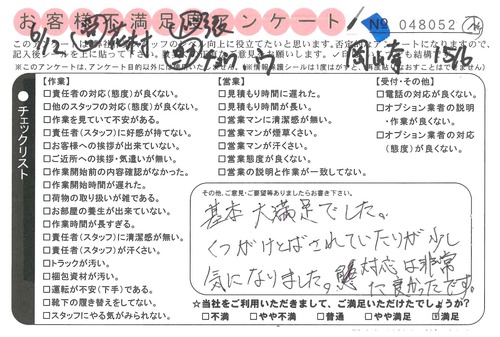 お客様不満足度アンケート
№ 048052
6/12
岡山市 15/6
【作業】
□責任者の対応(態度)が良くない。
□他のスタッフの対応(態度)が良くない。
□作業を見ていて不安がある。
□責任者(スタッフ)に好感が持てない。
□お客様への挨拶が出来ていない。
□ご近所への挨拶・気遣いが無い。
□作業開始前の内容確認がなかった。
□作業開始時間が遅れた。
□荷物の取り扱いが雑である。
□お部屋の養生が出来ていない。
□作業時間が長すぎる。
□責任者(スタッフ)に清潔感が無い。
□責任者(スタッフ)が汗くさい。
□トラックが汚い。
□梱包資材が汚い。
□運転が不安(下手)である。
□靴下の履き替えをしてない。
□スタッフにやる気がみられない。
【営業】
□見積もり時間に遅れた。
□見積もり時間が長い。
□営業マンに清潔感が無い。
□営業マンが煙草くさい。
□営業マンが汗くさい。
□営業態度が良くない。
□営業の説明と作業が一致してない。
【受付・その他】
□電話の対応が良くない。
□オプション業者の説明
・作業が良くない。
□オプション業者の対応
(態度)が良くない。
チェックリスト
その他、ご意見・ご要望等ありましたらお書き下さい。
基本大満足でした。
くつがけとばされていたりが少し
気になりました。対応は非常
に良かったです。
☆当社をご利用いただきまして、ご満足いただけたでしょうか?
□不満 □やや不満 □普通 □やや満足 □満足